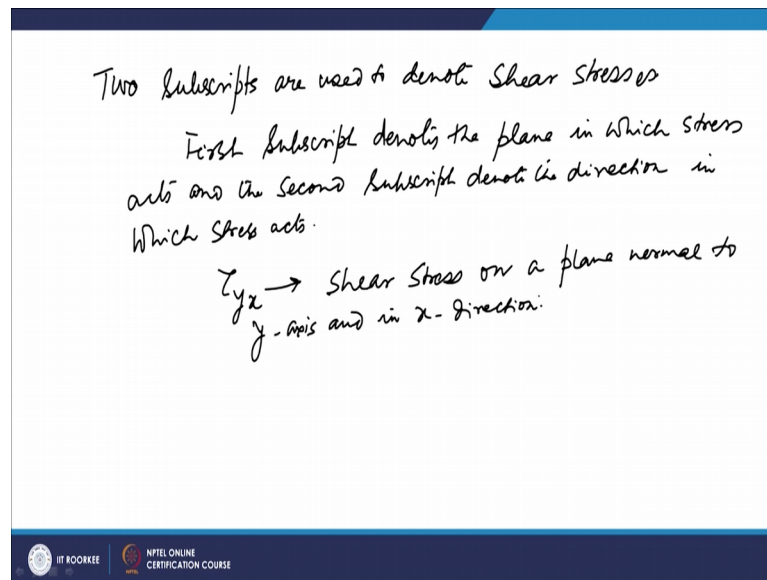 Two Subscripts are used to denote Shear Stresses
First Subscript denotes the plane in which stress
acts and the Second Subscript denote the direction in
which stress acts.
τyx → Shear Stress on a plane normal to
y-axis and in x-direction.
IIT ROORKEE
NPTEL ONLINE
CERTIFICATION COURSE